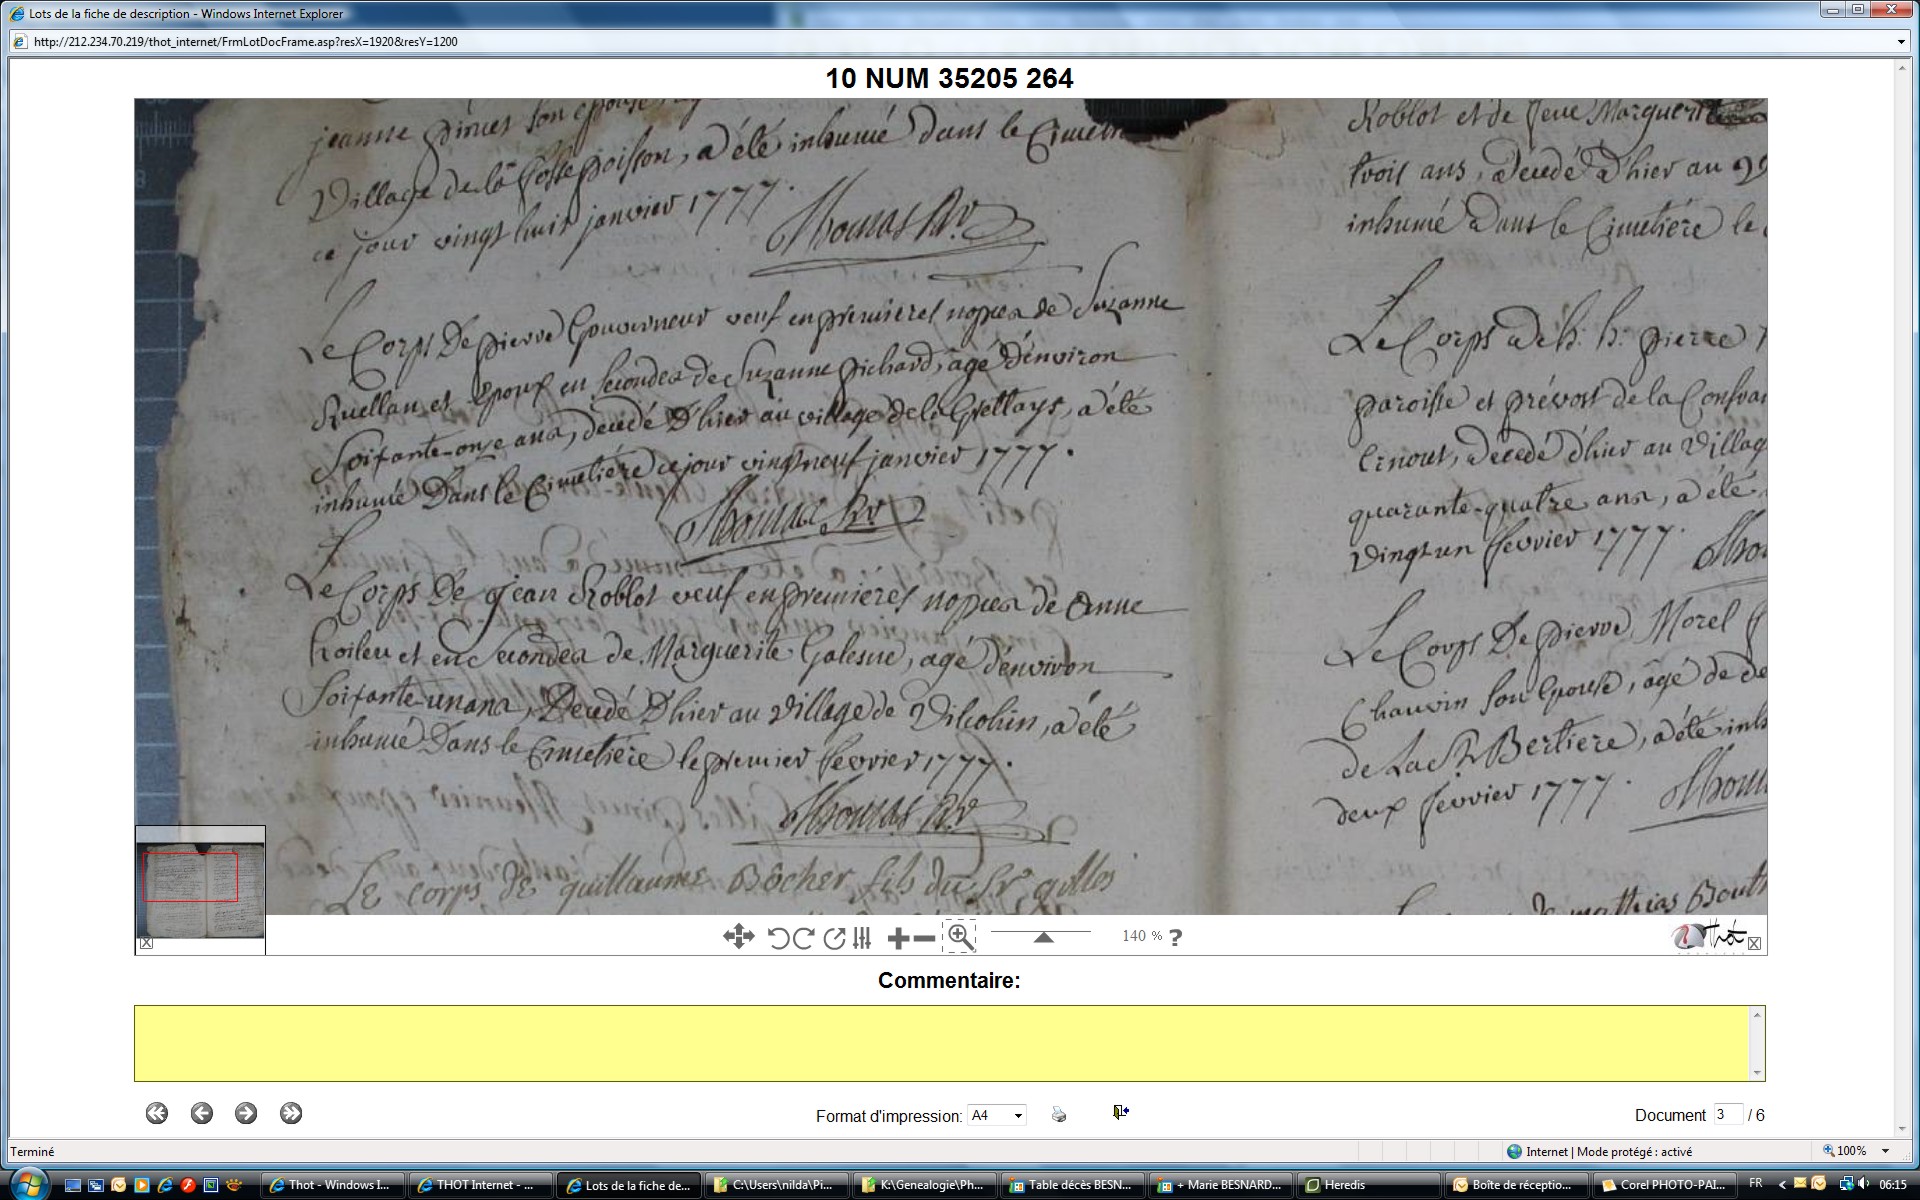 Lots de la fiche de description - Windows Internet Explorer
http://212.234.70.219/thot_internet/FrmLotDocFrame.asp?resX=1920&resY=1200
10 NUM 35205 264
jeanne son epouse
Village de la fosse poisson, a été inhumé dans le
ce jour vingt huit janvier 1777.
Thomas Rr
Le Corps De pierre Gouverneur veuf en premieres nopces de Suzanne
Ruellan et Epoux en secondes de Suzanne pichard, agé d'environ
Soixante-onze ans, decedé D'hier au village de la Grettays, a été
inhumé Dans le Cimetiére ce jour vingt neuf janvier 1777.
Thomas Rr
Le Corps De jean Roblot veuf en premieres nopces de anne
et en Secondes de Marguerite Galesne, agé d'environ
Soixante-un ans, Decedé D'hier au village de Vilcohin, a été
inhumé Dans le Cimetiére le premier fevrier 1777.
Thomas Rr
Le corps de guillaume Bôcher fils du Sr gilles
Roblot et de feue Marguerite
trois ans, decedé d'hier au 29
inhumé Dans le Cimetiére le
Le Corps de h. h. pierre
paroisse et prévost de la
decedé d'hier au Village
quarante-quatre ans, a été
Vingt un fevrier 1777.
Le Corps De pierre Morel
Chauvin son Epouse, agé de
de La Bertiere, a été
deux fevrier 1777.
de mathias
Thot
140 % ?
Commentaire:
Format d'impression: A4
Document 3 / 6
Terminé
Internet | Mode protégé : activé
100%
Thot - Windows I...
THOT Internet - ...
Lots de la fiche de...
C:\Users\nilda\Pi...
K:\Genealogie\Ph...
Table décès BESN...
+ Marie BESNARD...
Heredis
Boîte de réceptio...
Corel PHOTO-PAI...
FR
06:15